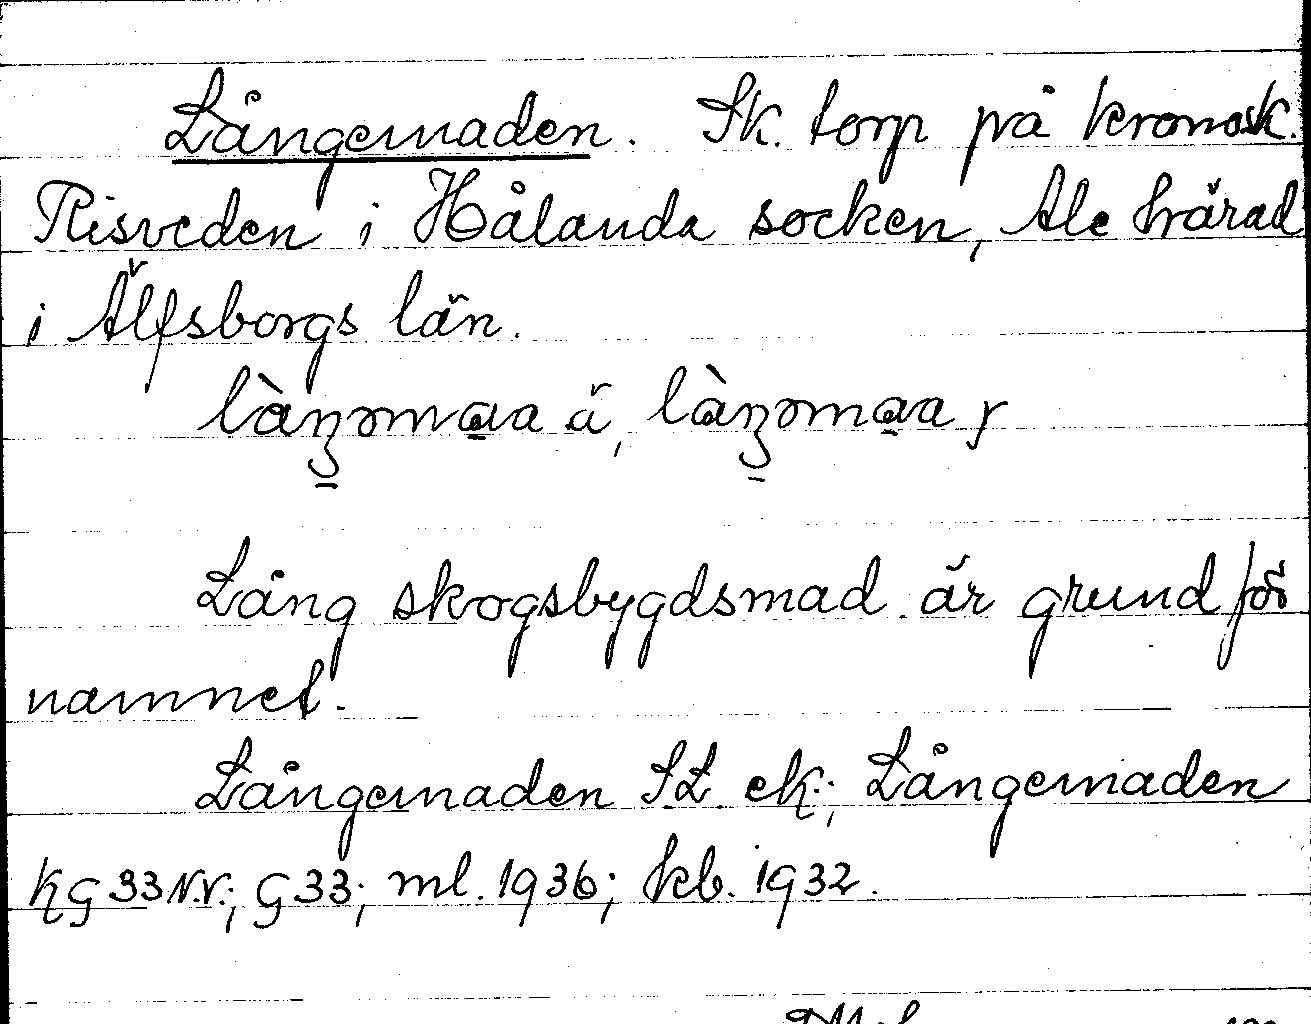 Långemaden. Sk. torp på kronosk.
Risveden i Hålanda socken, Ale härad
i Älfsborgs län.
Lång skogsbygdsmad är grund för
namnet.
Långemaden SL ek.; Långemaden
KG 33 N.V.; G 33; ml. 1936; kb. 1932.